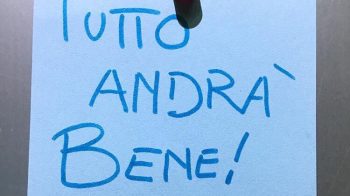 TUTTO
ANDRÀ
BENE!